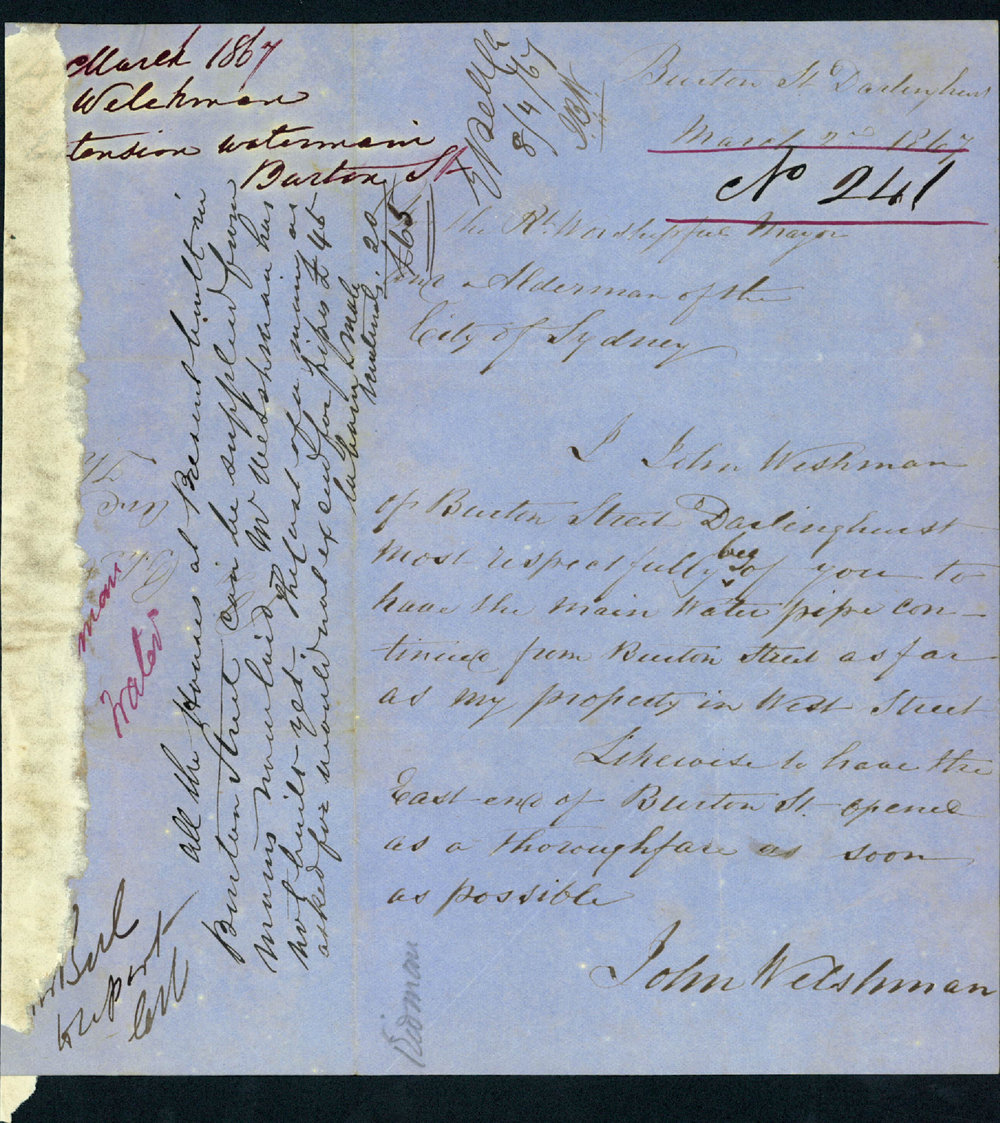 March 1867
Welchman
tension watermain
Burton St
8/4/67
Burton St Darlinghurst
March 2nd 1867
No 241
the Rt Worshipful Mayor
and Alderman of the
City of Sydney
I John Weshman
of Burton Street Darlinghurst
most respectfully beg of you to
have the main water pipe con-
tinued from Burton Street as far
as my property in West Street
Likewise to have the
East end of Burton St. opened
as a thoroughfare as soon
as possible
John Welshman
all the Houses at Present built in
Burton Street can be supplied from
mains now laid Mr Welshman has
not built yet The Cost of a main as
asked for would not exceed for pipes £45
labour & mate
rials 20
£65
man
Water
report